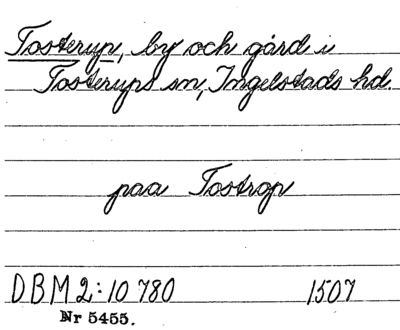 Tosterup, by och gård i
Tosterups sn, Ingelstads hd.
paa Tostrop
DBM 2: 10 780 1507
Nr 5455.